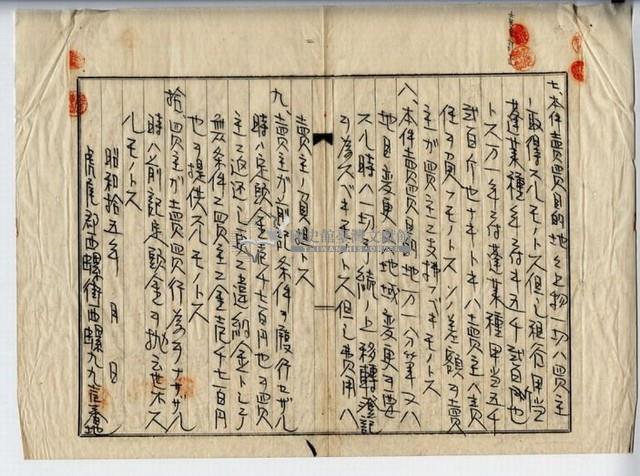 七、本件賣買目的地上物一切ハ買主
ニ取得スルモノトス但シ租谷甲当
蓬莱種年付五千弐百斤也
トス万一年付蓬莱種甲当五千
弐百斤也ナキトキハ賣主ハ責
任ヲ負フモノトスソノ差額ヲ賣
主が買主ニ支拂フベキモノトス
八、本件賣買目的地万一分筆又ハ
地目変更地域変更ヲ要
スル時ハ一切ノ手続ノ上移轉登記
ヲ為スベキモノトス但シ費用ハ
賣主ノ負担トス
九、賣主が前記条件ヲ履行セザル
時ハ定頭金壱千七百円也ヲ買
主ニ返还シ更ニ違約金トシテ
無条件ニ買主ニ金壱千七百円
也ヲ提供スルモノトス
拾、買主が賣買行為ヲナサザル
時ハ前記定頭金ヲ抛棄ス
ルモノトス
昭和拾五年 月 日
虎尾郡西螺街西螺九九壱番地